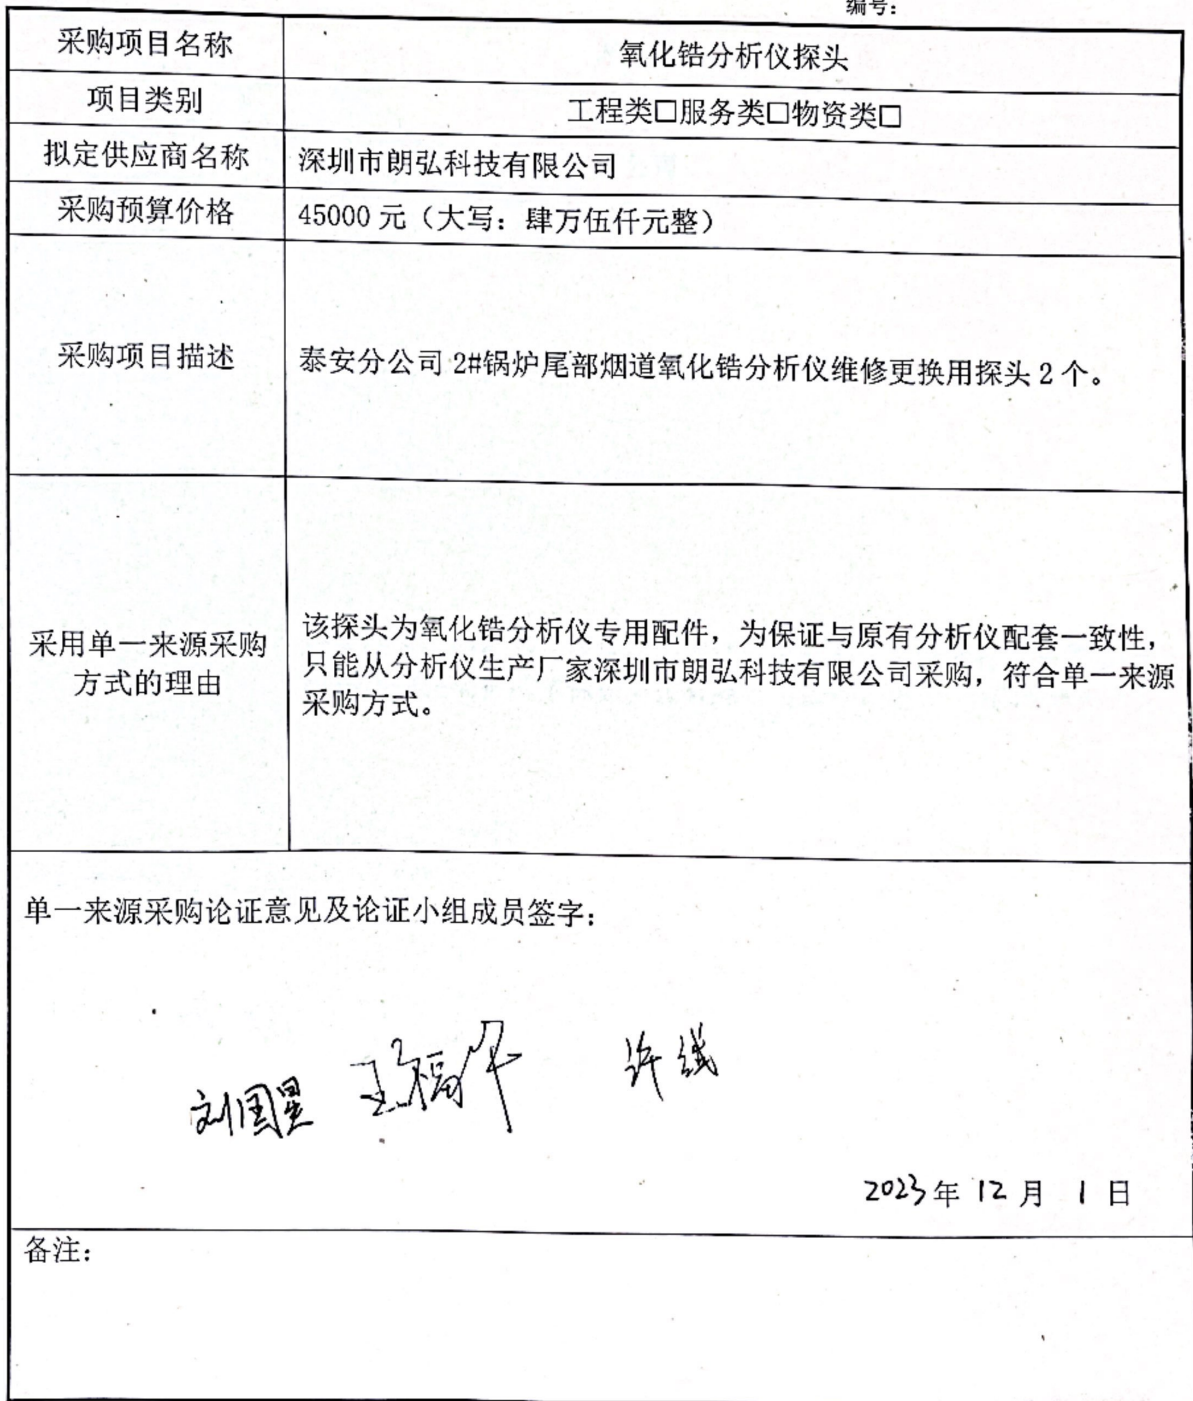 编号:
采购项目名称
氧化锆分析仪探头
项目类别
工程类□服务类□物资类□
拟定供应商名称
深圳市朗弘科技有限公司
采购预算价格
45000元（大写：肆万伍仟元整）
采购项目描述
泰安分公司2#锅炉尾部烟道氧化锆分析仪维修更换用探头2个。
采用单一来源采购
方式的理由
该探头为氧化锆分析仪专用配件，为保证与原有分析仪配套一致性，
只能从分析仪生产厂家深圳市朗弘科技有限公司采购，符合单一来源
采购方式。
单一来源采购论证意见及论证小组成员签字：
刘国星
2023年12月1日
备注：